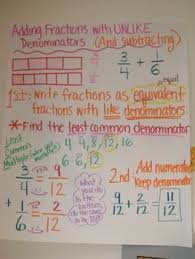 Adding Fractions with UNLIKE
Denominators (And subtracting)
3/4 + 1/6
equal
1st: Write fractions as equivalent
fractions with like denominators
*Find the least common denominator
Least
Common
Multiple
4 4, 8, 12, 16
6 6, 12
3/4 = 9/12
+ 1/6 = 2/12
What
you do
to the
bottom,
do the same
to the top
2nd - Add numerators
Keep denominator
9/12 + 2/12 = 11/12